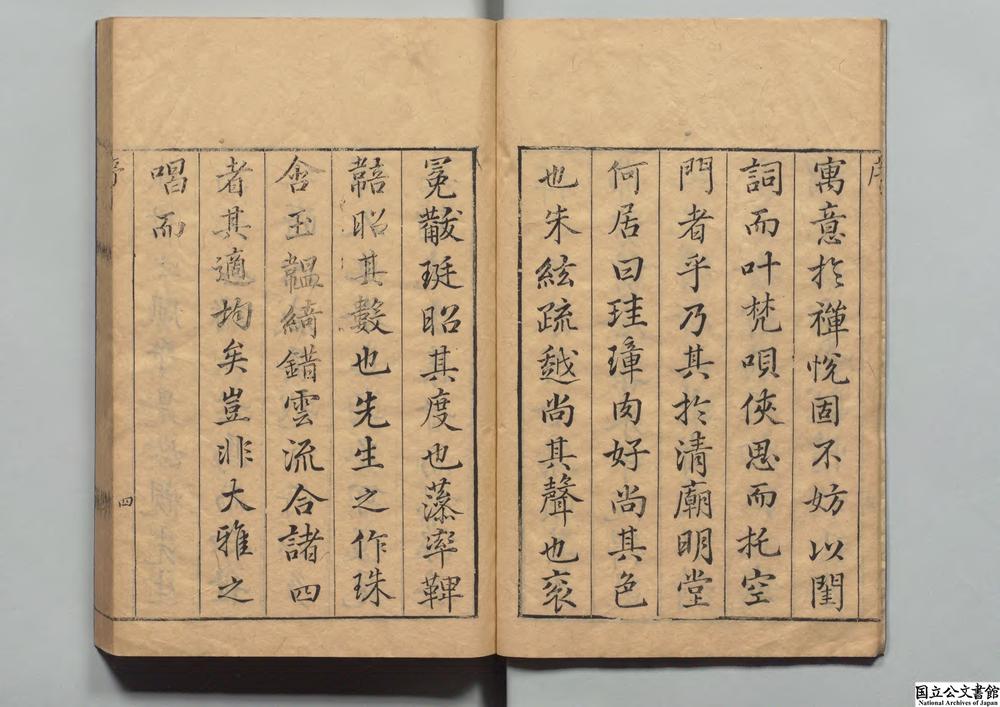 序
寓意於禪悅固不妨以閨
詞而叶梵唄俠思而托空
門者乎乃其於清廟明堂
何居曰珪璋肉好尚其色
也朱絃疏越尚其聲也衮
冕黻珽昭其度也藻率鞞
鞛昭其數也先生之作珠
含玉韞綺錯雲流合諸四
者其適均矣豈非大雅之
唱而
四
国立公文書館
National Archives of Japan